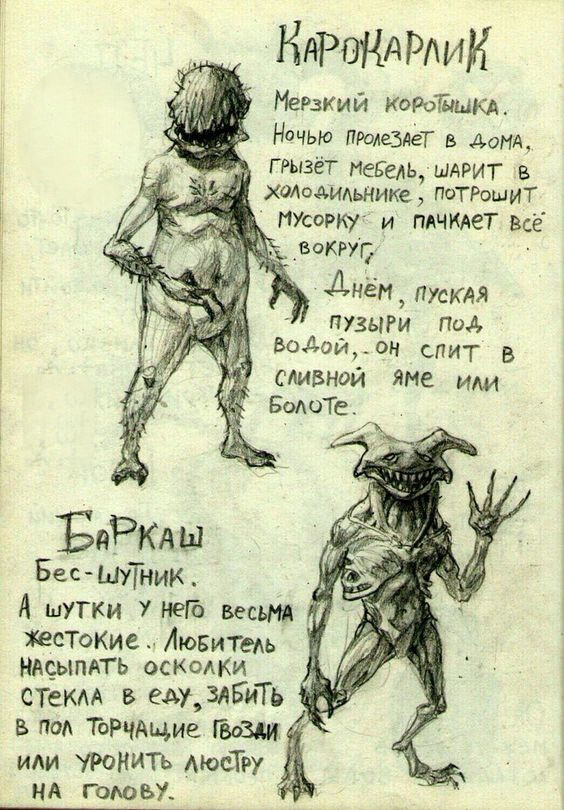 Карокарлик
Мерзкий коротышка.
Ночью пролезает в дома,
грызёт мебель, шарит в
холодильнике, потрошит
мусорку и пачкает всё
вокруг.
Днём, пуская
пузыри под
водой, он спит в
сливной яме или
болоте.
Баркаш
Бес-шутник.
А шутки у него весьма
жестокие. Любитель
насыпать осколки
стекла в еду, забить
в пол торчащие гвозди
или уронить люстру
на голову.